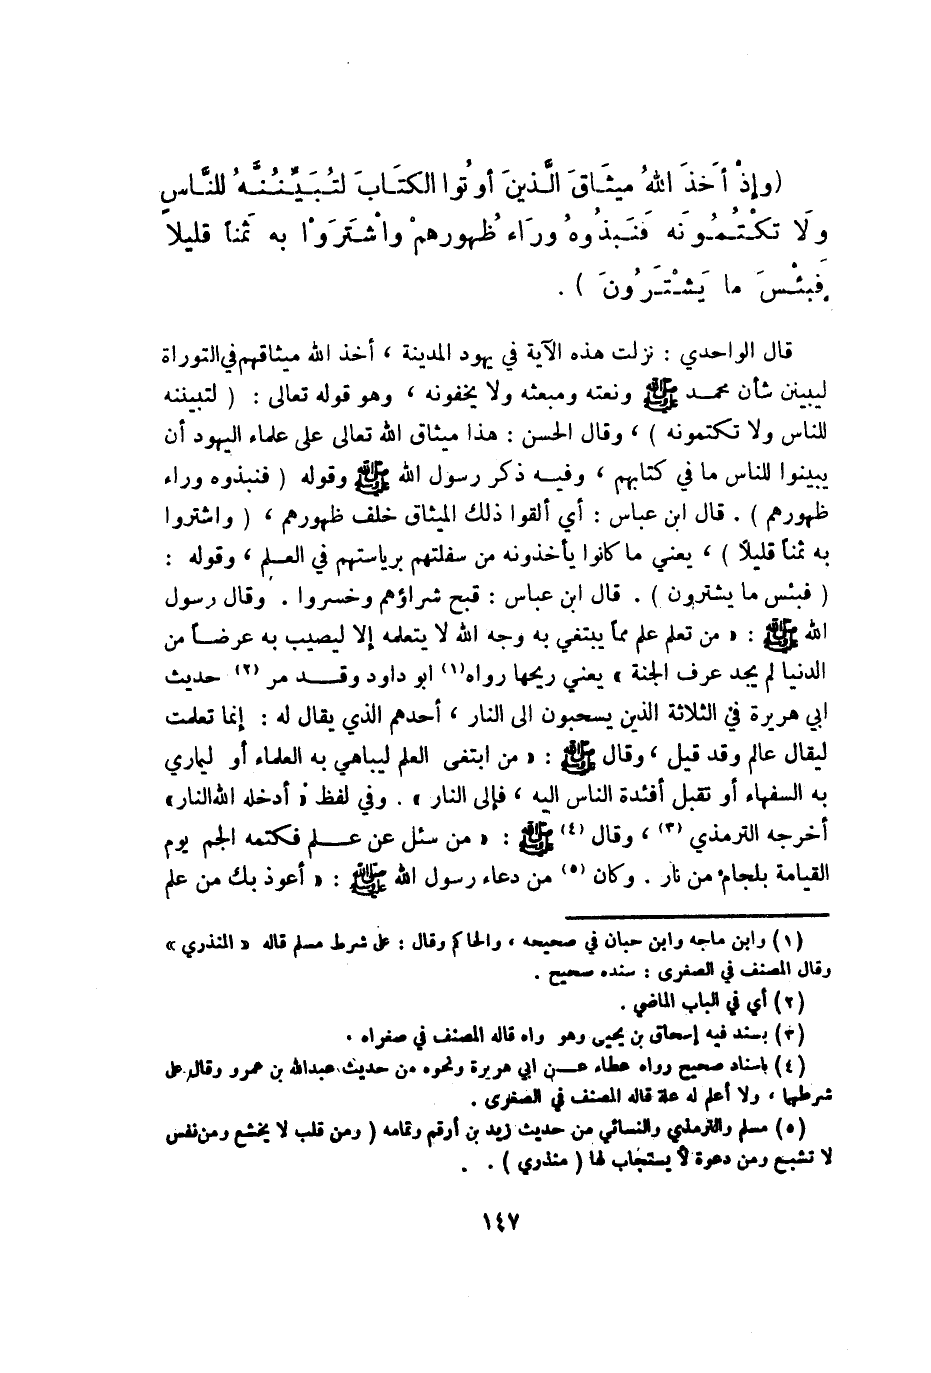 (وإذْ أخَذَ اللهُ ميثَاقَ الَّذينَ أوتُوا الكتَابَ لتُبَيِّنُنَّهُ للنَّاسِ
وَلَا تكْتُمُونَه فَنَبذُوهُ ورَاء ظُهورهمْ واشْتَرَوْا به ثمناً قليلاً
فَبئْسَ ما يَشْتَرُونَ ) .
قال الواحدي : نزلت هذه الآية في يهود المدينة ، أخذ الله ميثاقهم في التوراة
ليبينن شأن محمد ﷺ ونعته ومبعثه ولا يخفونه ، وهو قوله تعالى : ( لتبيننه
للناس ولا تكتمونه ) ، وقال الحسن : هذا ميثاق الله تعالى على علماء اليهود أن
يبينوا للناس ما في كتابهم ، وفيه ذكر رسول الله ﷺ وقوله ( فنبذوه وراء
ظهورهم ) . قال ابن عباس : أي ألقوا ذلك الميثاق خلف ظهورهم ، ( واشتروا
به ثمناً قليلاً ) ، يعني ما كانوا يأخذونه من سفلتهم برياستهم في العلم ، وقوله :
( فبئس ما يشترون ) . قال ابن عباس : قبح شراؤهم وخسروا . وقال رسول
الله ﷺ : « من تعلم علم مما يبتغي به وجه الله لا يتعلمه إلا ليصيب به عرضاً من
الدنيا لم يجد عرف الجنة » يعني ريحها رواه (١) ابو داود وقد مر (٢) حديث
ابي هريرة في الثلاثة الذين يسحبون الى النار ، أحدهم الذي يقال له : إنما تعلمت
ليقال عالم وقد قيل ، وقال ﷺ : « من ابتغى العلم ليباهي به العلماء أو ليماري
به السفهاء أو تقبل أفئدة الناس اليه ، فإلى النار » . وفي لفظ « أدخله الله النار»
أخرجه الترمذي (٣) ، وقال (٤) ﷺ : « من سئل عن علم فكتمه الجم يوم
القيامة بلجام من نار . وكان (٥) من دعاء رسول الله ﷺ : « أعوذ بك من علم
(١) وابن ماجه وابن حبان في صحيحه ، والحاكم وقال : على شرط مسلم قاله « المنذري »
وقال المصنف في الصغرى : سنده صحيح .
(٢) أي في الباب الماضي .
(٣) بسند فيه إسحاق بن يحيى وهو واه قاله المصنف في صغراه .
(٤) باسناد صحيح رواه عطاء عن ابي هريرة ونحوه من حديث عبدالله بن عمرو وقال على
شرطها ، ولا أعلم له علة قاله المصنف في الصغرى .
(٥) مسلم والترمذي والنسائي من حديث زيد بن أرقم وتمامه ( ومن قلب لا يخشع ومن نفس
لا تشبع ومن دعوة لا يستجاب لها ( منذري ) . .
١٤٧